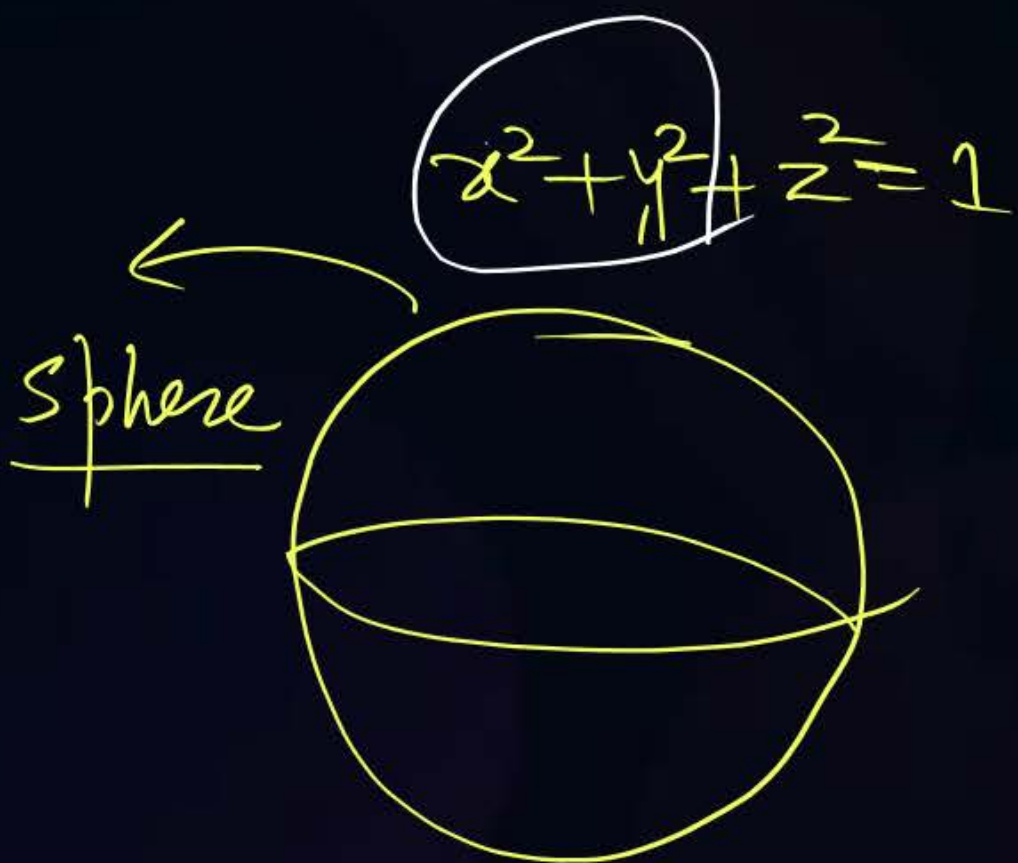 x² + y² + z² = 1
Sphere